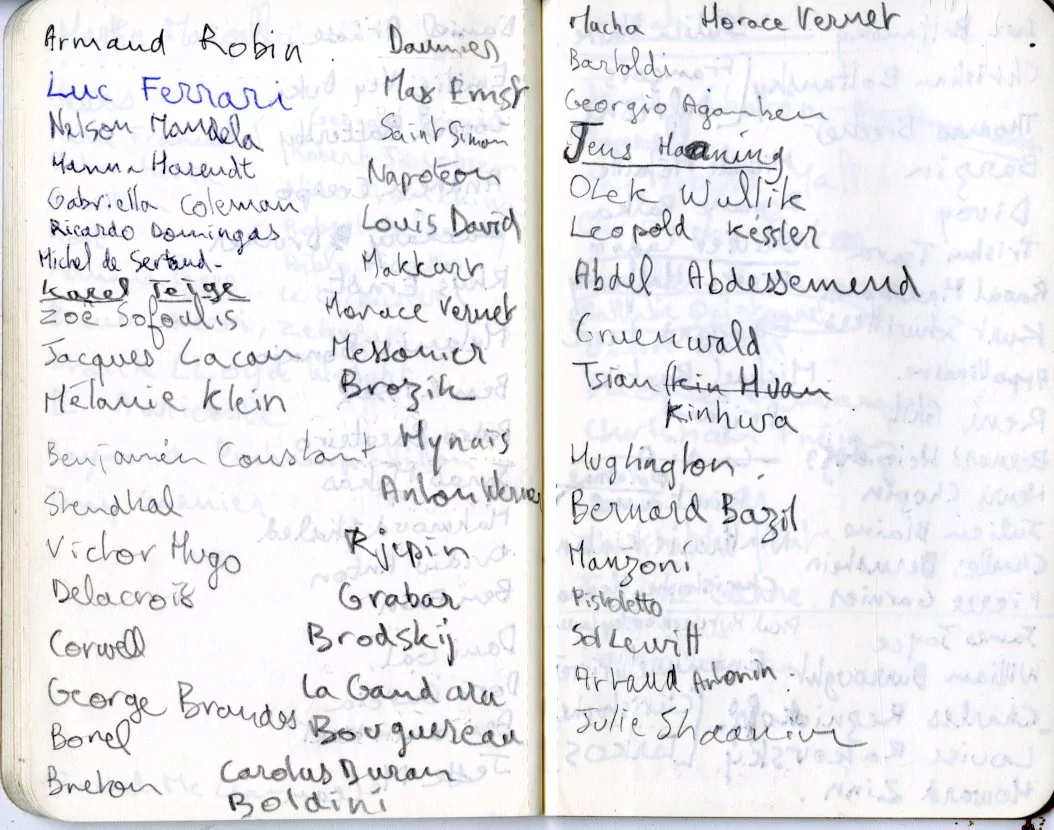 Armand Robin
Luc Ferrari
Nelson Mandela
Hanna Harendt
Gabriella Coleman
Ricardo Domingas
Michel de Sertaud-
Karel Teige
Zoë Sofoulis
Jacques Lacan
Mélanie Klein
Benjamin Constant
Stendhal
Victor Hugo
Delacroix
Corwell
George Brandes
Borel
Breton
Daumier
Max Ernst
Saint Simon
Napoléon
Louis David
Makkart
Horace Vernet
Messonier
Brozik
Hynais
Anton Werner
Rjepin
Grabar
Brodskij
La Gandara
Bouguereau
Carolus Duran
Boldini
Mucha Horace Vernet
Bartoldi
Georgio Agamben
Jens Haaning
Olek Wullik
Leopold Kessler
Abdel Abdessemend
Gruenwald
Tsian Hein Huan
Kinhwa
Hughington
Bernard Bazil
Manzoni
Pistoletto
Sol Lewitt
Arraud Antonin
Julie